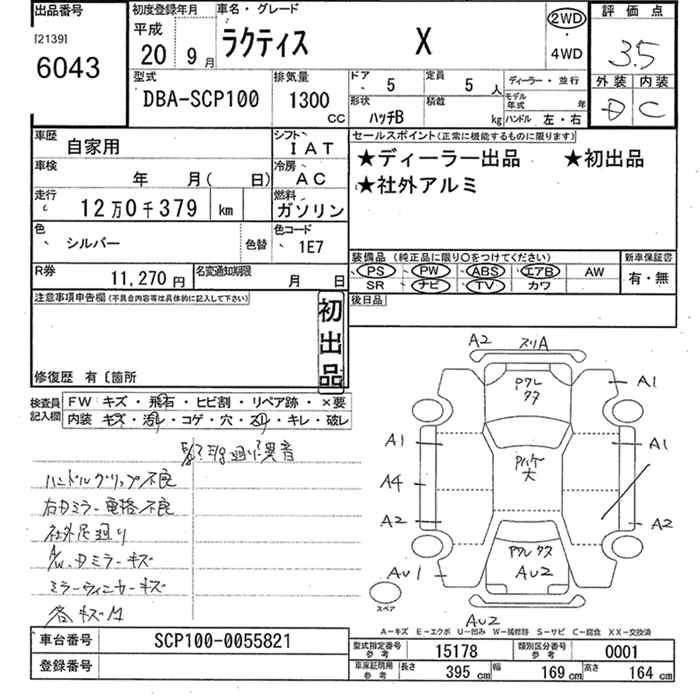 出品番号
[2139]
6043
初度登録年月
平成
20 9月
車名・グレード
ラクティス X
2WD
・
4WD
評価点
3.5
外装 内装
D C
型式
DBA-SCP100
排気量
1300
CC
ドア 5
定員 5人
形状 ハッチB
積載 kg
ディーラー・並行
モデル年式 年
ハンドル 左・右
車歴 自家用
シフト IAT
車検 年 月( 日)
冷房 AC
走行 12万0千379 km
燃料 ガソリン
色 シルバー 色替
色コード 1E7
R券 11,270円
名変通知期限 月 日
セールスポイント(正常に機能するものに限ります)
★ディーラー出品 ★初出品
★社外アルミ
装備品 (純正品に限り○をつけてください)
PS PW ABS エアB AW
SR ナビ TV カワ
新車保証書
有・無
後日品
注意事項申告欄(不具合内容等は具体的に記入して下さい)
初出品
修復歴 有〔箇所
検査員記入欄
FW キズ・飛石・ヒビ割・リペア跡・×要
内装 キズ・汚・コゲ・穴・スリ・キレ・破レ
異音
ハンドルグリップ不良
右ドミラー電格不良
社外足廻り
A/W、ドミラーキズ
ミラーウィンカーキズ
各キズ
A2 スリA
A1
A1
A1
A4
A2
A2
AU1
AU2
AU2
スペア
A－キズ E－エクボ U－凹み W－補修跡 S－サビ C－腐食 XX－交換済
車台番号 SCP100-0055821
登録番号
型式指定番号 参考 15178
類別区分番号 参考 0001
車庫証明用 参考
長さ 395 cm 幅 169 cm 高さ 164 cm